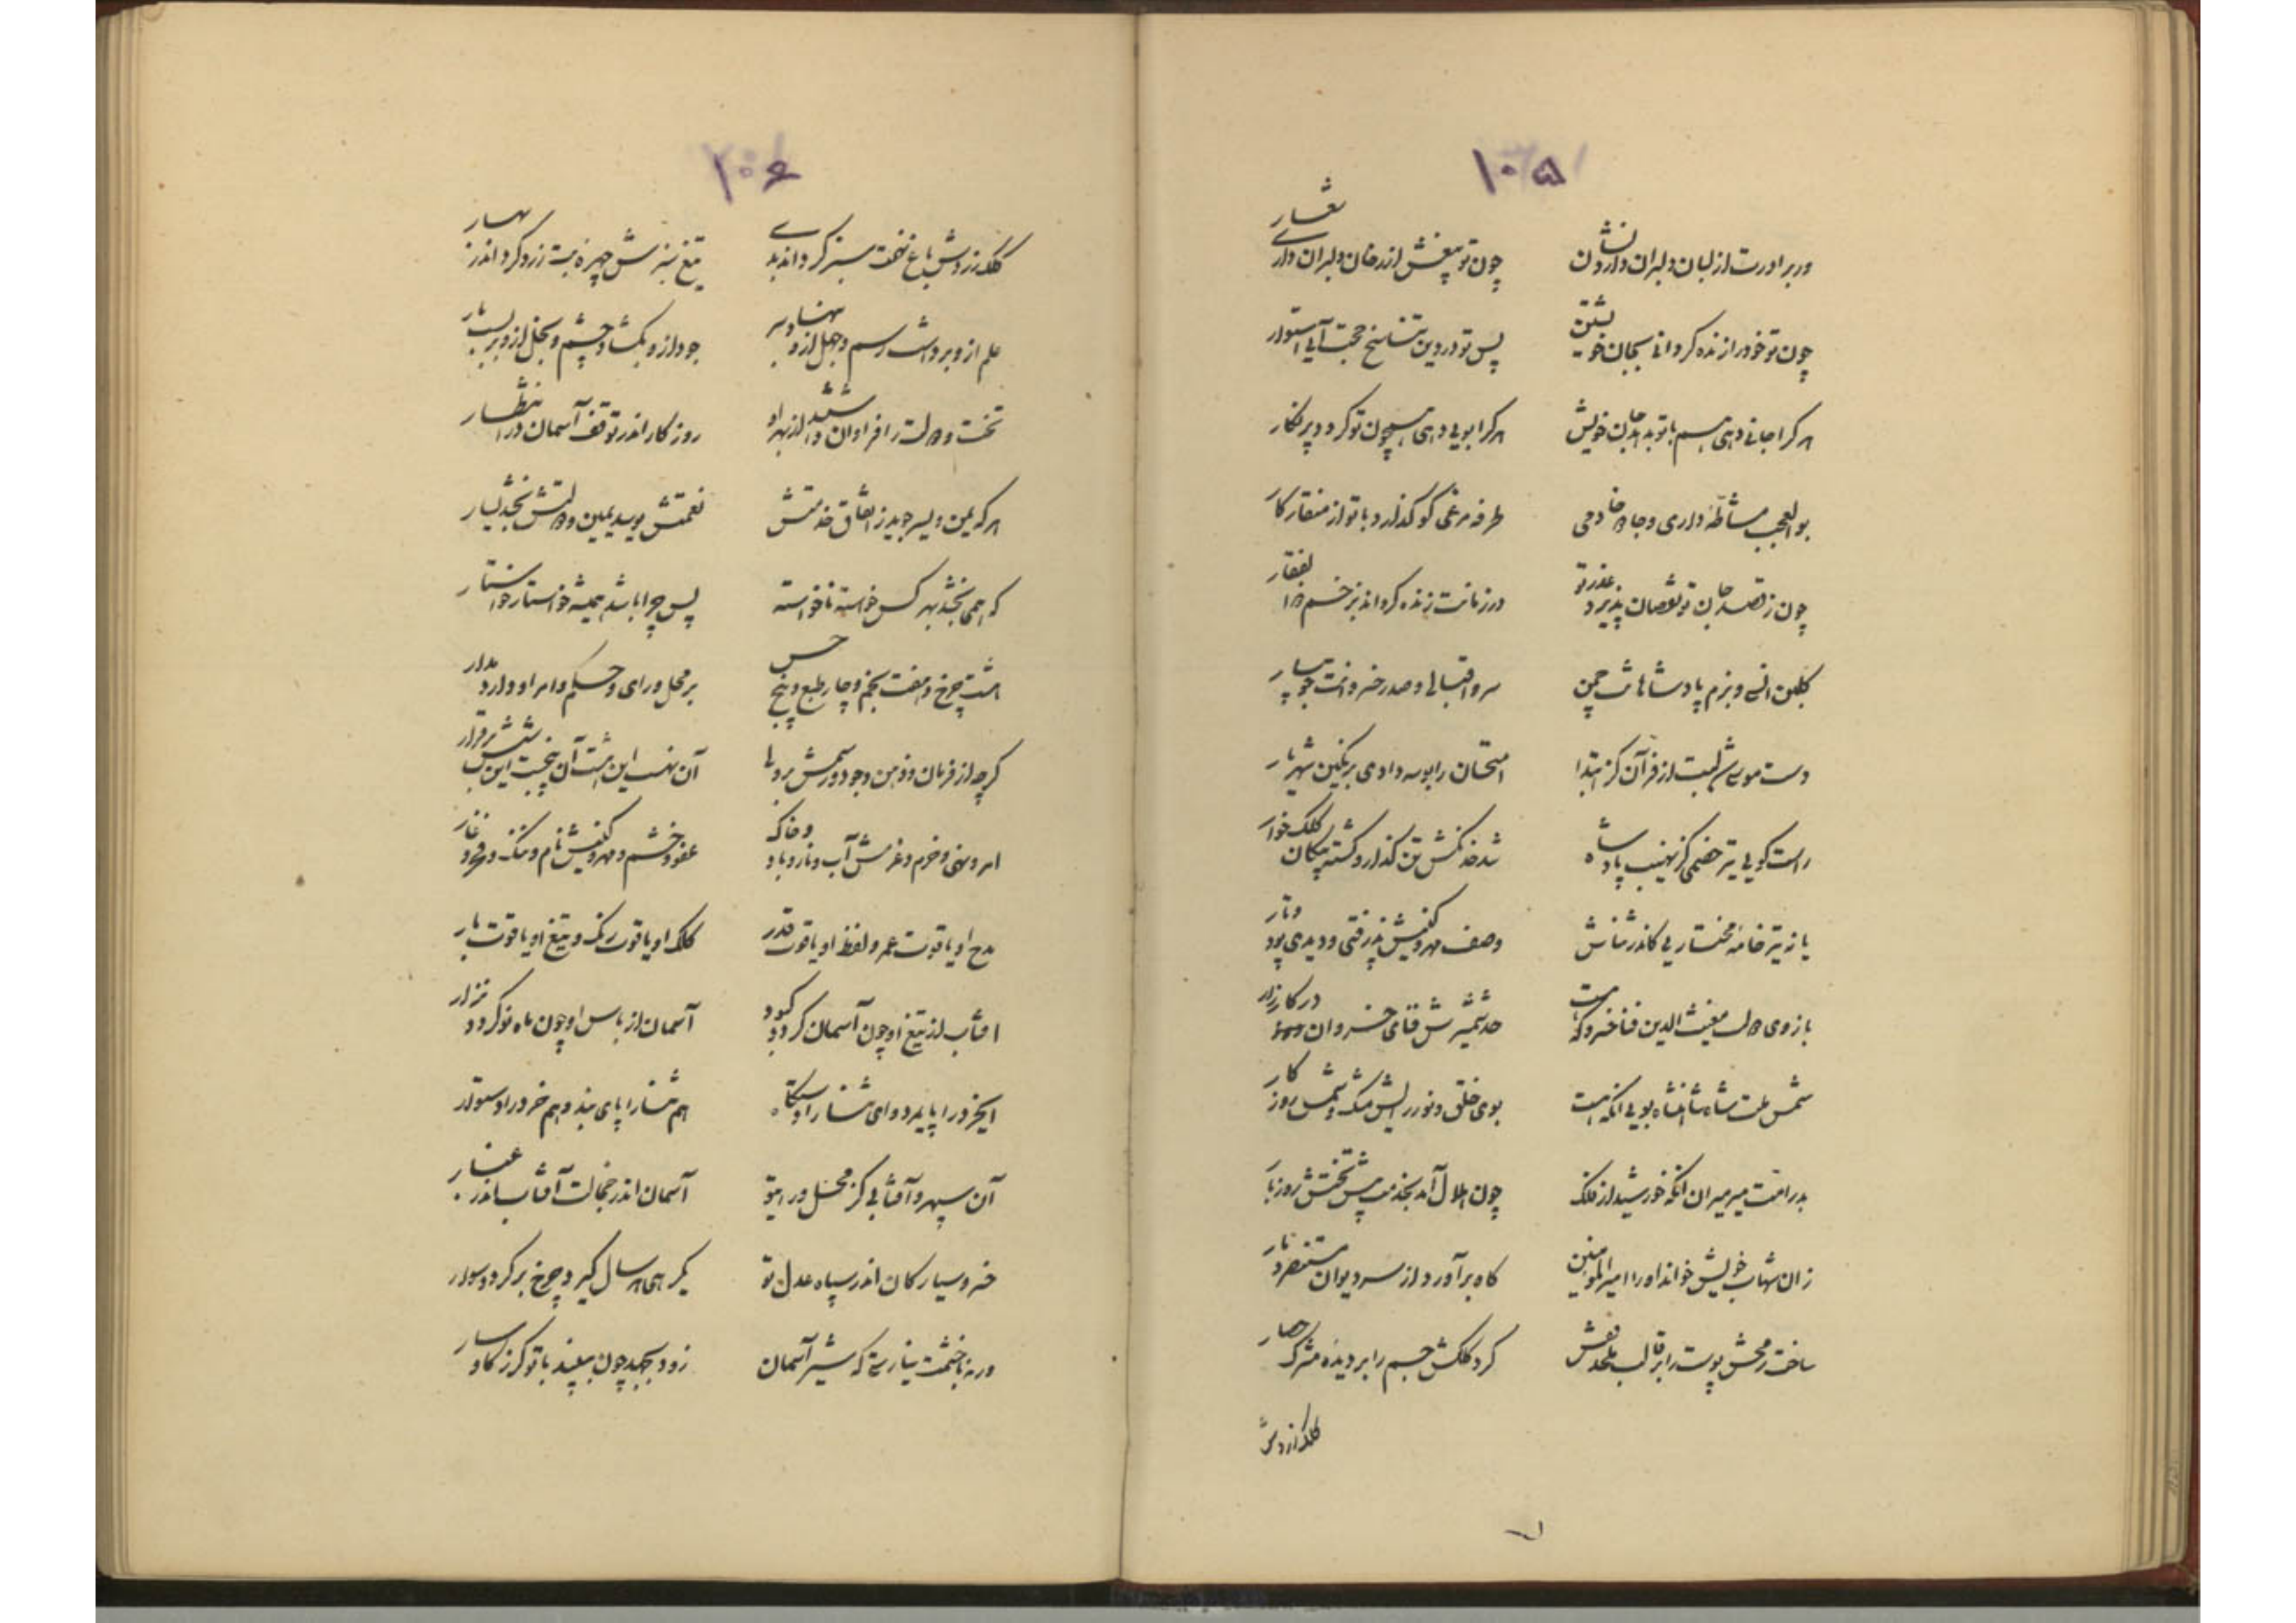 ۱۰۵
ور برادرت از لبان دلبران دارد نشان
چون تو بیغش از رخان دلبران داری شعار
چون تو خود را زنده گردانی بجان خویشتن
پس تو در دین تناسخ حجت آیی استوار
هر کرا جانی دهی هم با تو بدهد جان خویش
هر کرا بویی دهی همچون تو گردد پر نگار
بوالعجب مشاطه داری و جادو خادمی
طرفه مرغی کو گذارد با تو از منقار کار
چون ز قصد جان تو نقصان پذیرد عذر تو
در زمانت زنده گرداند بزخم ذوالفقار
گلبن انسی و بزم پادشاهانت چمن
سرو اقبالی و صدر خسروانت جویبار
دست موسی شبت از فرآن کز ابتدا
امتحان را بوسه دادی بر نگین شهریار
راست گویی تیر خصمی کز نهیب پادشاه
شد خدنگش تن گذار و گشته پیکان کلک خوار
یا نه تیر خامه مختاریی کاندر ثناش
وصف مهر و کینش پذرفتی و دیدی پود و تار
بازوی دولت مغیث الدین فناخسرو که هست
حد شمشیرش قفای خسروان در کارزار
شمس ملت شاه شاهنشاه بویی آنکه هست
بوی خلق و نور رایش مشک و شمس روزگار
بدر امت میر میران آنکه خورشید از فلک
چون هلال آید بخدمت پیش تختش روز بار
زان شهاب خویش خواند او را امیرالمؤمنین
کاو برآورد از سر دیوان مستنصر دمار
ساخت رمحش پوست را بر قالب ملحد قفس
کرد کلکش جسم را بر دیده مشرک حصار
کلک زردش
۱۰۶
کلک زردش باغ نخت سبز گرداند بدی
تیغ سبزش چهره بت زرد گرداند بهار
علم ازو برداشت رسم و جهل ازو بنهاد سر
جود ازو بگشاد چشم و بخل ازو بربست بار
تخت دولت را فراوان داشتند از بهر او
روزگار اندر توقف آسمان در انتظار
هر که یمن و یسر جوید ز اتفاق خدمتش
نعمتش بوسد یمین و دولتش بخشد یسار
که همی بخشد بهر کس خواسته ناخواسته
پس چرا باشد همیشه خواستار خواستار
هشت چرخ و هفت نجم و چار طبع و پنج حس
بر محل و رای و حکم و امر او دارد مدار
گرچه از فرمان و ذهن وجود و رسمش بردها
آن نهست این هشت آن پنجست این شش برقرار
امر و نهی و حزم و عزمش آب و نار و باد و خاک
عفو و خشم و مهر و کینش نام و ننگ و فخر و عار
مدح او یاقوت عمر و لفظ او یاقوت قدر
کلک او یاقوت رنگ و تیغ او یاقوت بار
آفتاب از تیغ او چون آسمان گردد کبود
آسمان از باس او چون ماه نو گردد نزار
ای خرد را پایمرد و ای هنر را دستگاه
هم هنر را پای بند و هم خرد را دستوار
آن سپهر و آفتابی کز محل و رای تو
آسمان اندر خجالت آفتاب اندر غبار
خسرو سیارگان اندر سپاه عدل تو
گر همی هر سال گیرد چرخ بر گردد سوار
ورنه با خشمت نیارستی که شیر آسمان
زود بجهد چون ببیند با تو گرز گاوسار